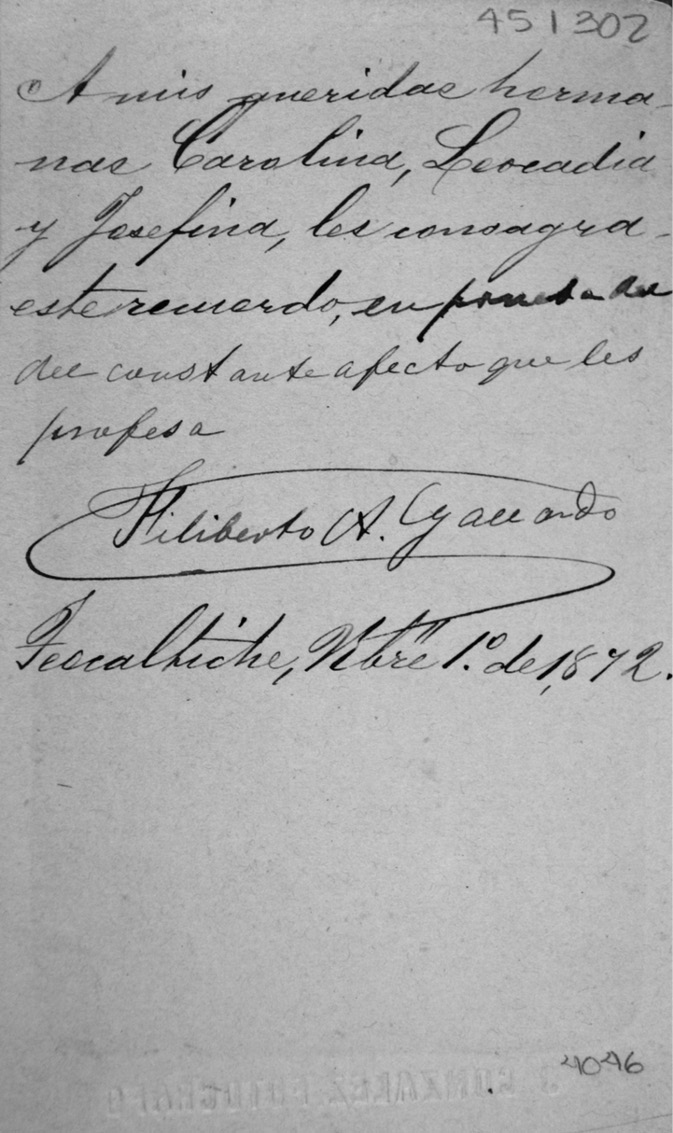 451302
A mis queridas herma-
nas Carolina, Leocadia
y Josefina, les consagra
este recuerdo, en prueba del
del constante afecto que les
profesa
Filiberto A. Gallardo
Teocaltiche, Nbre 1º. de 1,872.
4046
J. GONZALEZ FOTOGRAFO